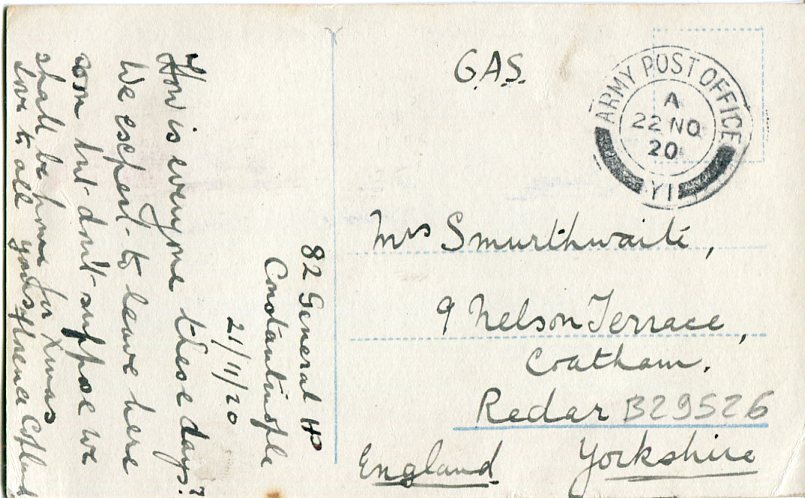 82 General HP
Constantinople
21/11/20
How is everyone these days?
We expect to leave here
soon but don't suppose we
shall be home for Xmas
Love to all yours Florence
G.A.S.
ARMY POST OFFICE
A
22 NO
20
Y1
Mrs Smurthwaite,
9 Nelson Terrace,
Coatham.
Redar B29526
Yorkshire
England